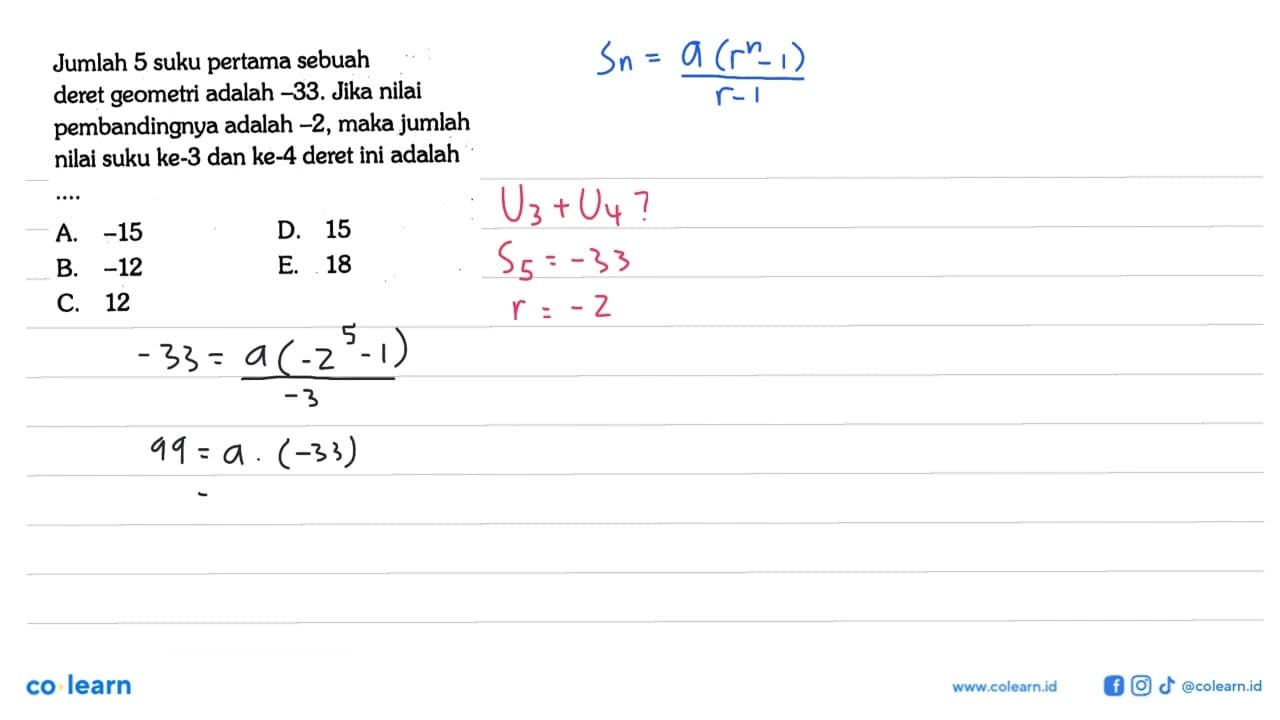 Jumlah 5 suku pertama sebuah
deret geometri adalah –33. Jika nilai
pembandingnya adalah –2, maka jumlah
nilai suku ke-3 dan ke-4 deret ini adalah
....
A. –15 D. 15
B. –12 E. 18
C. 12
Sn = a(r^n - 1) / r - 1
U3 + U4 ?
S5 = -33
r = -2
-33 = a(-2^5 - 1) / -3
99 = a . (-33)
-
co learn
www.colearn.id @colearn.id